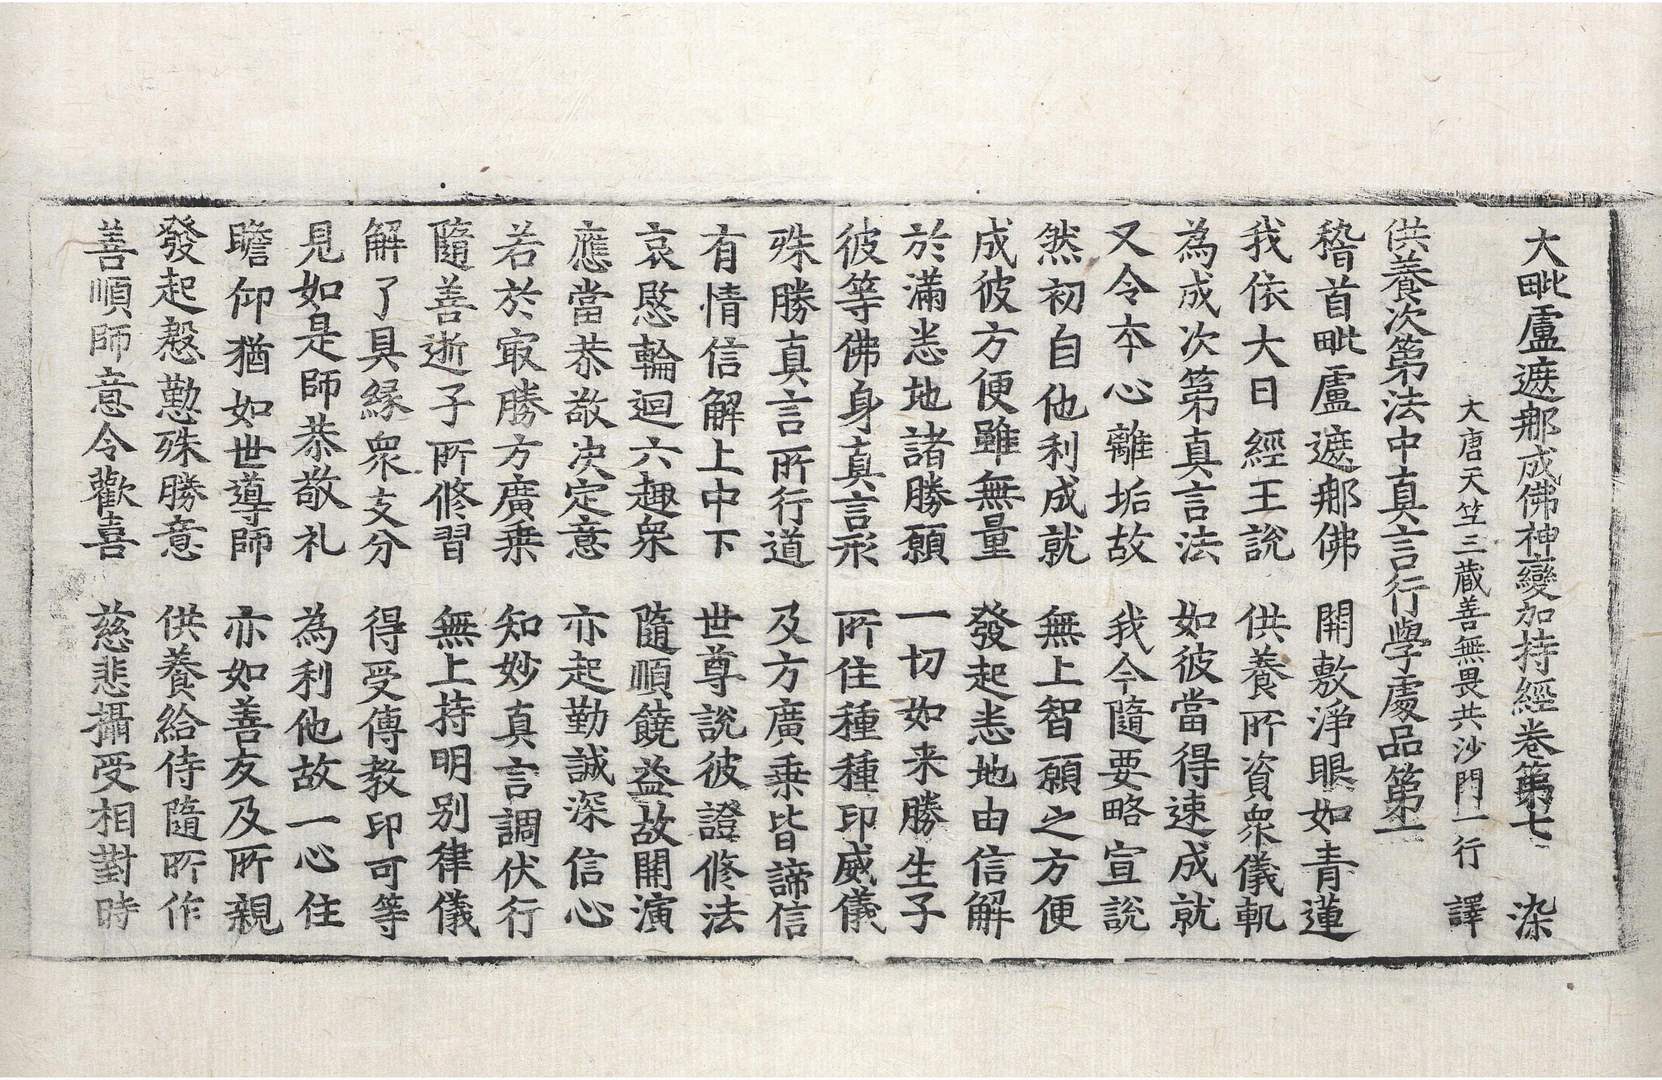 大毗盧遮那成佛神變加持經卷第七 染
大唐天竺三藏善無畏共沙門一行 譯
供養次第法中真言行學處品第一
稽首毗盧遮那佛 開敷淨眼如青蓮
我依大日經王說 供養所資衆儀軌
為成次第真言法 如彼當得速成就
又令本心離垢故 我今隨要略宣說
然初自他利成就 無上智願之方便
成彼方便雖無量 發起悉地由信解
於滿悉地諸勝願 一切如来勝生子
彼等佛身真言形 所住種種印威儀
殊勝真言所行道 及方廣乗皆諦信
有情信解上中下 世尊說彼證修法
哀愍輪迴六趣衆 隨順饒益故開演
應當恭敬决定意 亦起勤誠深信心
若於㝡勝方廣乗 知妙真言調伏行
隨善逝子所修習 無上持明別律儀
解了具緣衆支分 得受傳教印可等
見如是師恭敬礼 為利他故一心住
瞻仰猶如世導師 亦如善友及所親
發起慇懃殊勝意 供養給侍隨所作
善順師意令歡喜 慈悲攝受相對時